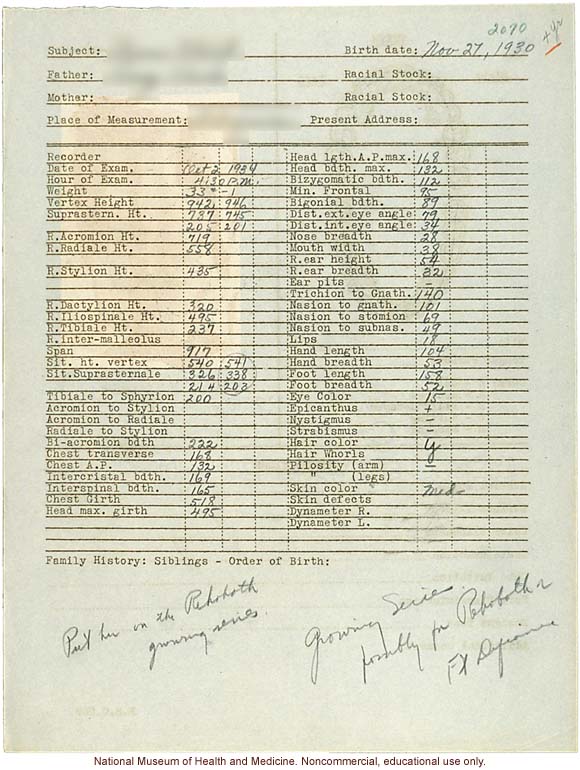 2090
+yr
Subject: Birth date: Nov 27, 1930
Father: Racial Stock:
Mother: Racial Stock:
Place of Measurement: Present Address:
Recorder Head lgth.A.P.max. 168
Date of Exam. Oct 2 1934 Head bdth. max. 132
Hour of Exam. 4:30 P.M. Bizygomatic bdth. 112
Weight 33 - 1 Min. Frontal 95
Vertex Height 942 946 Bigonial bdth. 89
Suprastern. Ht. 737 745 Dist.ext.eye angle 79
205 201 Dist.int.eye angle 34
R.Acromion Ht. 719 Nose breadth 28
R.Radiale Ht. 558 Mouth width 38
R.ear height 54
R.Stylion Ht. 435 R.ear breadth 32
Ear pits –
Trichion to Gnath. 140
R.Dactylion Ht. 320 Nasion to gnath. 101
R.Iliospinale Ht. 495 Nasion to stomion 69
R.Tibiale Ht. 237 Nasion to subnas. 49
R.inter-malleolus Lips 18
Span 917 Hand length 104
Sit. ht. vertex 540 541 Hand breadth 53
Sit.Suprasternale 326 338 Foot length 158
214 203 Foot breadth 52
Tibiale to Sphyrion 200 Eye Color 15
Acromion to Stylion Epicanthus +
Acromion to Radiale Nystigmus –
Radiale to Stylion Strabismus –
Bi-acromion bdth 222 Hair color y
Chest transverse 168 Hair Whorls
Chest A.P. 132 Pilosity (arm) –
Intercristal bdth. 169 " (legs)
Interspinal bdth. 165 Skin color med-
Chest Girth 518 Skin defects
Head max. girth 495 Dynameter R.
Dynameter L.
Family History: Siblings - Order of Birth:
Put her on the Rehoboth
growing series.
Growing Series
possibly for Rehoboth
FX Defiance
National Museum of Health and Medicine. Noncommercial, educational use only.